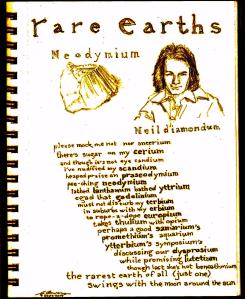 rare earths
Neodymium
Neil diamondum
please mock me not nor americum
there's sugar on my cerium
and though it's not eye candium
i've nudified my scandium
heaped praise on praseodymium
pee-ohing neodymium
lathed lanthanum bathed yttrium
egad that gadolinium
must not disturb my terbium
in suburbs with my erbium
to rope-a-dope europium
takes thullium with opium
perhaps a good samarium's
promethium's aquarium
ytterbium's symposium's
discussing our dysprosium
while promising lutetium
though last du's hot
the rarest earth of all (just one)
swings with the moon around the sun